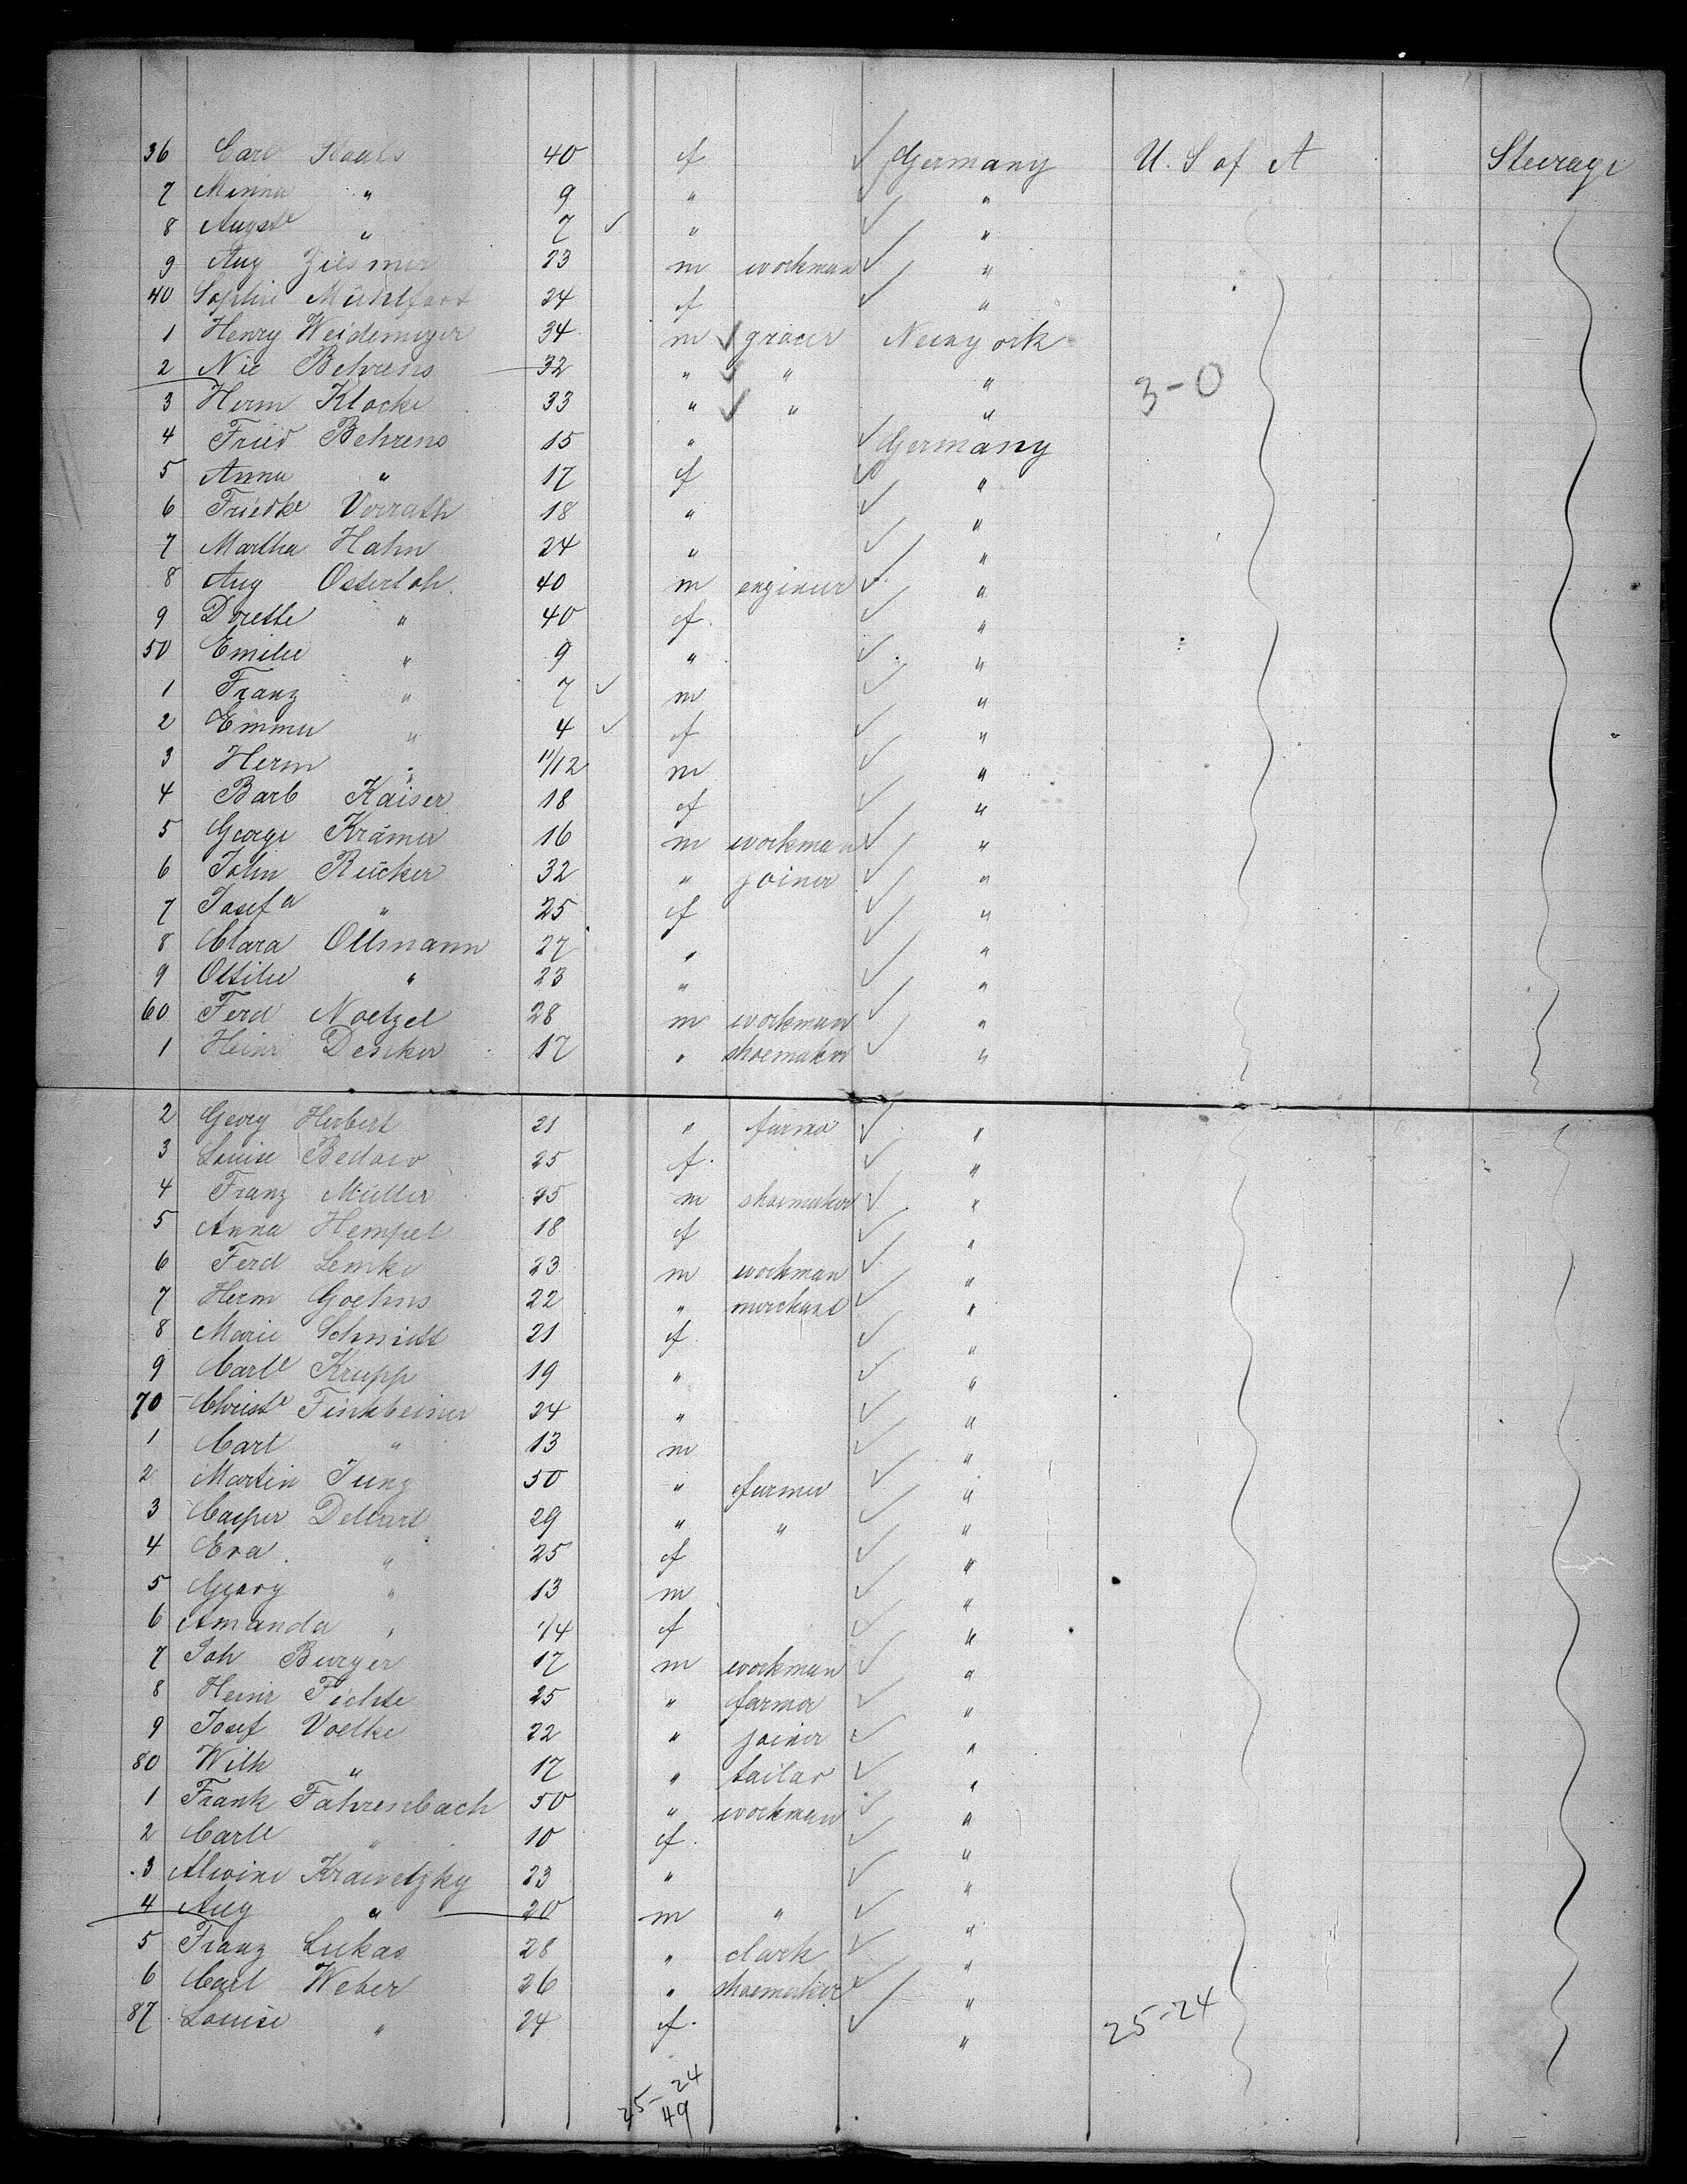 36 Carol 40 f ✓ Germany U. S of A Steerage
7 Minna " 9 " ✓ "
8 August " 7 ✓ " ✓ "
9 Aug Ziesmer 23 m workman ✓ "
40 Sophie Mühlfort 24 f ✓ "
1 Henry Weidemeyer 34 m ✓ grocer New york
2 Nic Behrens 32 " ✓ " "
3 Herm Klocke 33 " ✓ " " 3-0
4 Fried Behrens 15 " ✓ Germany
5 Anna " 17 f ✓ "
6 Friedke Vorrath 18 " ✓ "
7 Martha Hahn 24 " ✓ "
8 Aug Osterloh 40 m enginer ✓ "
9 Dorette " 40 f ✓ "
50 Emilie " 9 " ✓ "
1 Franz " 7 ✓ m ✓ "
2 Emma " 4 ✓ f ✓ "
3 Herm " 11/12 m ✓ "
4 Barb Kaiser 18 f ✓ "
5 George Krämer 16 m workman ✓ "
6 John Rücker 32 " joiner ✓ "
7 Josefa " 25 f ✓ "
8 Clara Ollmann 27 " ✓ "
9 Ottilie " 23 " ✓ "
60 Ferd Noetzel 28 m workman ✓ "
1 Heinr Descker 17 " shoemaker ✓ "
2 Georg Herbert 21 " farmer ✓ "
3 Louise Bedow 25 f ✓ "
4 Franz Müller 25 m shoemaker ✓ "
5 Anna Hempel 18 f ✓ "
6 Ferd Lemke 23 m workman ✓ "
7 Herm Goehns 22 " merchant ✓ "
8 Marie Schmidt 21 f ✓ "
9 Carle Krupp 19 " ✓ "
70 Christe Finkbeiner 24 " ✓ "
1 Carl " 13 m ✓ "
2 Martin Jung 50 " farmer ✓ "
3 Casper Dellart 29 " " ✓ "
4 Eva " 25 f ✓ "
5 Georg " 13 m ✓ "
6 Amanda " 1/4 f ✓ "
7 Joh Burger 17 m workman ✓ "
8 Heinr Fichte 25 " farmer ✓ "
9 Josef Voelke 22 " joiner ✓ "
80 Wilh " 17 " tailor ✓ "
1 Frank Fahrenbach 50 " workman ✓ "
2 Carle " 10 f ✓ "
3 Alwine Krawetzky 23 " ✓ "
4 Aug " 20 m " ✓ "
5 Franz Lukas 28 " clark ✓ "
6 Carl Weber 26 " shoemaker ✓ "
87 Louise " 24 f ✓ " 25-24
25-24
49